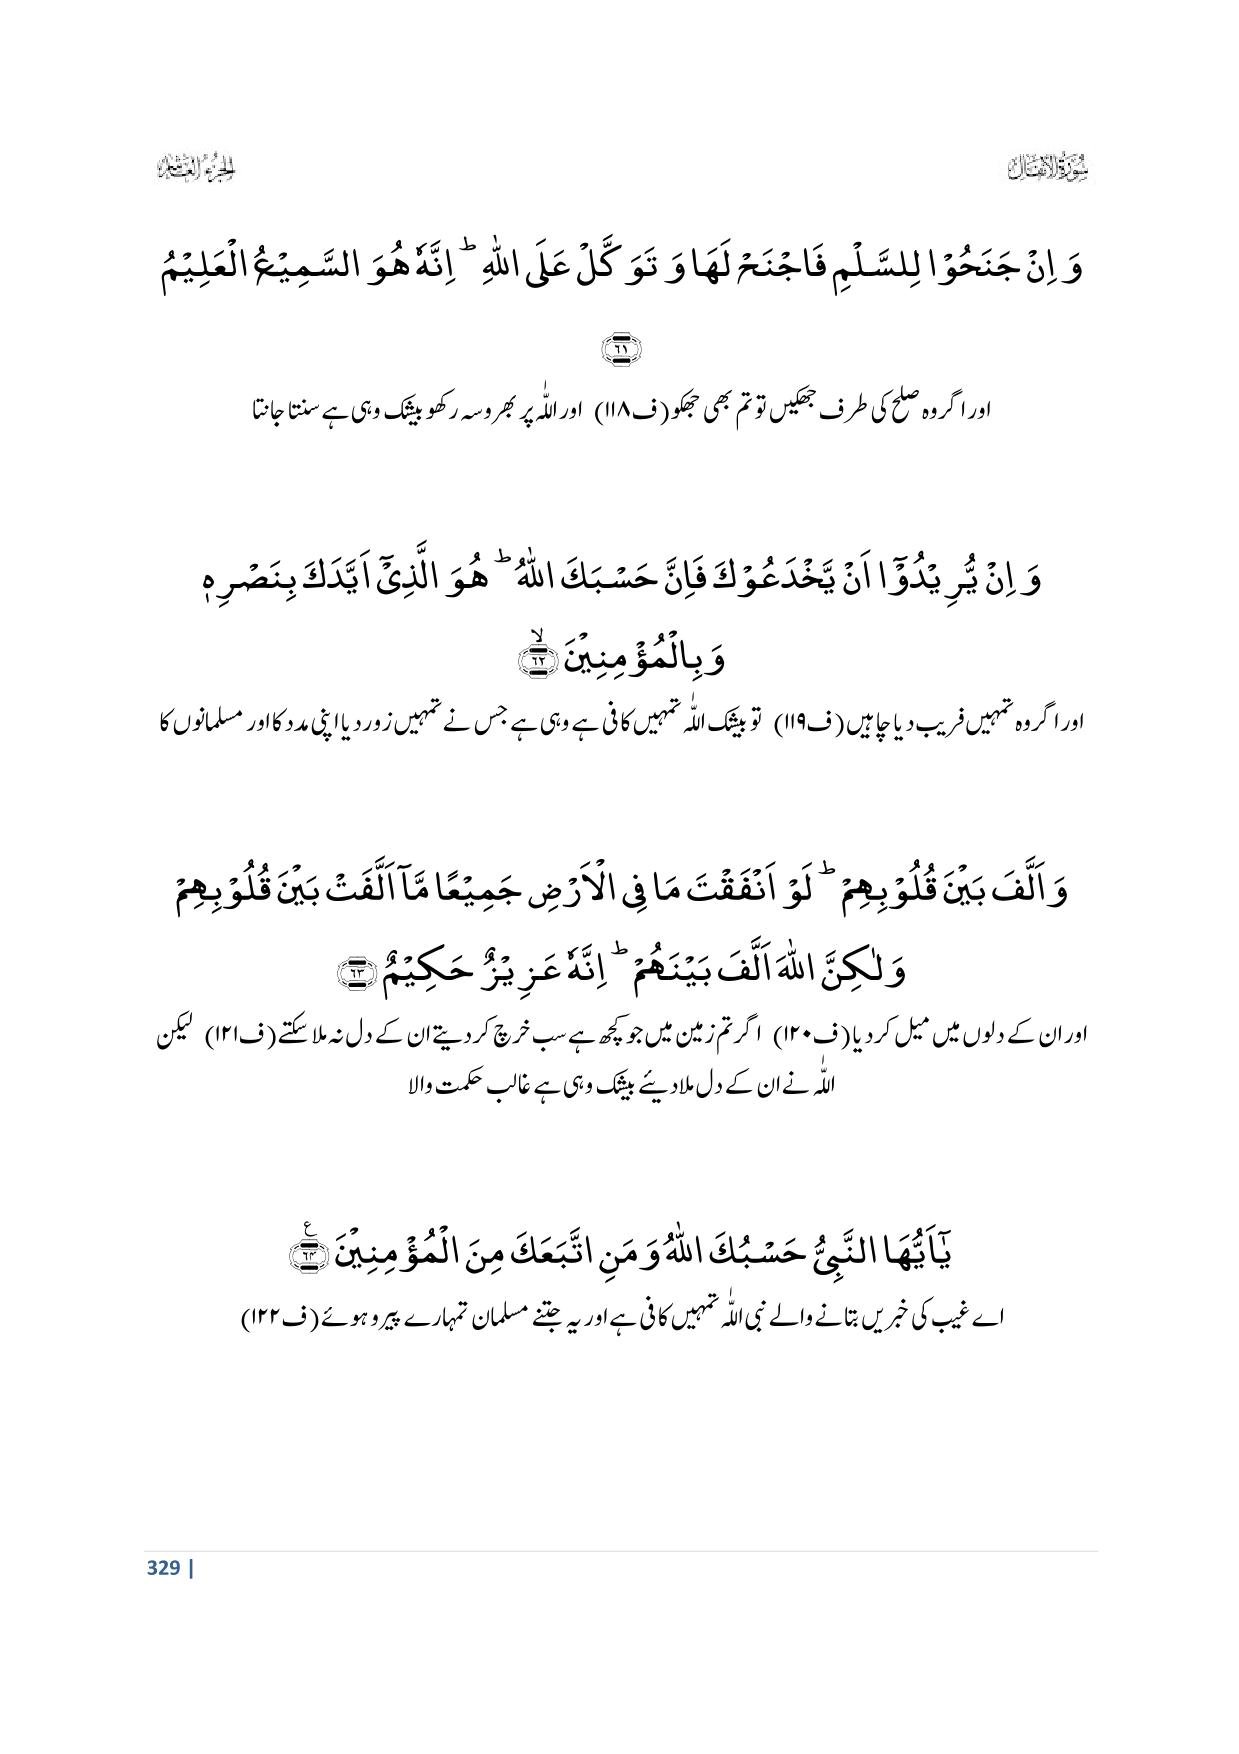 سورة الانفال
الجزء العاشر
وَ اِنْ جَنَحُوْا لِلسَّلْمِ فَاجْنَحْ لَهَا وَ تَوَكَّلْ عَلَى اللّٰهِ ؕ اِنَّهٗ هُوَ السَّمِیْعُ الْعَلِیْمُ
﴿۶۱﴾
اور اگر وہ صلح کی طرف جھکیں تو تم بھی جھکو (ف۱۱۸) اور اللّٰہ پر بھروسہ رکھو بیشک وہی ہے سنتا جانتا
وَ اِنْ یُّرِیْدُوْۤا اَنْ یَّخْدَعُوْكَ فَاِنَّ حَسْبَكَ اللّٰهُ ؕ هُوَ الَّذِیْۤ اَیَّدَكَ بِنَصْرِهٖ
وَ بِالْمُؤْمِنِیْنَ ۙ﴿۶۲﴾
اور اگر وہ تمہیں فریب دیا چاہیں (ف۱۱۹) تو بیشک اللّٰہ تمہیں کافی ہے وہی ہے جس نے تمہیں زور دیا اپنی مدد کا اور مسلمانوں کا
وَ اَلَّفَ بَیْنَ قُلُوْبِهِمْ ؕ لَوْ اَنْفَقْتَ مَا فِی الْاَرْضِ جَمِیْعًا مَّاۤ اَلَّفَتْ بَیْنَ قُلُوْبِهِمْ
وَ لٰكِنَّ اللّٰهَ اَلَّفَ بَیْنَهُمْ ؕ اِنَّهٗ عَزِیْزٌ حَكِیْمٌ ﴿۶۳﴾
اور ان کے دلوں میں میل کر دیا (ف۱۲۰) اگر تم زمین میں جو کچھ ہے سب خرچ کر دیتے ان کے دل نہ ملا سکتے (ف۱۲۱) لیکن
اللّٰہ نے ان کے دل ملا دیئے بیشک وہی ہے غالب حکمت والا
یٰۤاَیُّهَا النَّبِیُّ حَسْبُكَ اللّٰهُ وَ مَنِ اتَّبَعَكَ مِنَ الْمُؤْمِنِیْنَ ﴿۶۴﴾ ع
اے غیب کی خبریں بتانے والے نبی اللّٰہ تمہیں کافی ہے اور یہ جتنے مسلمان تمہارے پیرو ہوئے (ف۱۲۲)
329 |